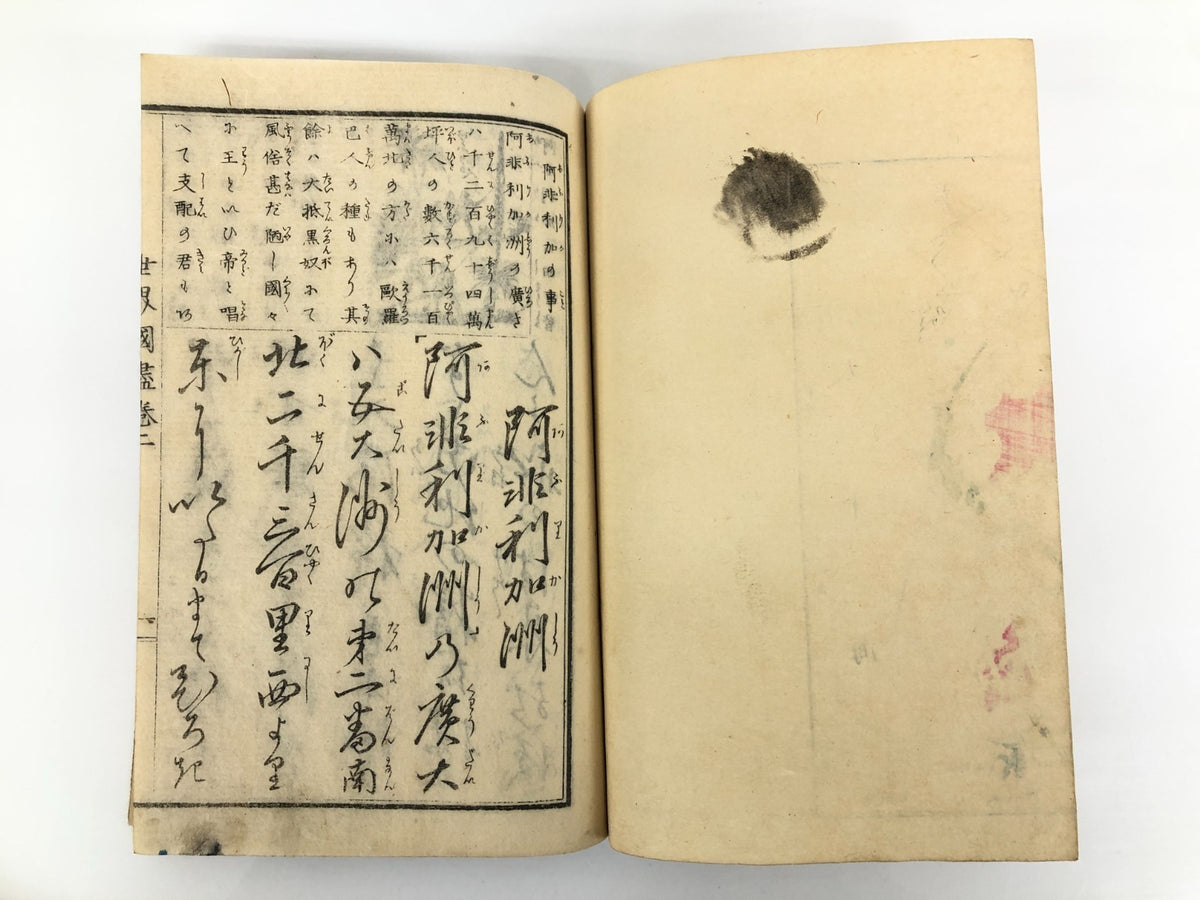 阿非利加の事
阿非利加洲の廣さ
ハ千二百九十四萬
坪人の數六千一百
萬北の方ハ歐羅
巴人の種もあり其
餘ハ大抵黒奴にて
風俗甚だ陋し國々
に王といひ帝と唱
へて支配の君もあ
阿非利加洲
阿非利加洲乃廣大
ハ五大洲の第二番南
北二千三百里西より
東にいたるまで
世界國盡卷二